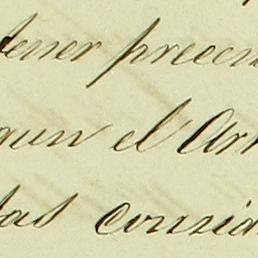 tener presen
gun el Art
las consid